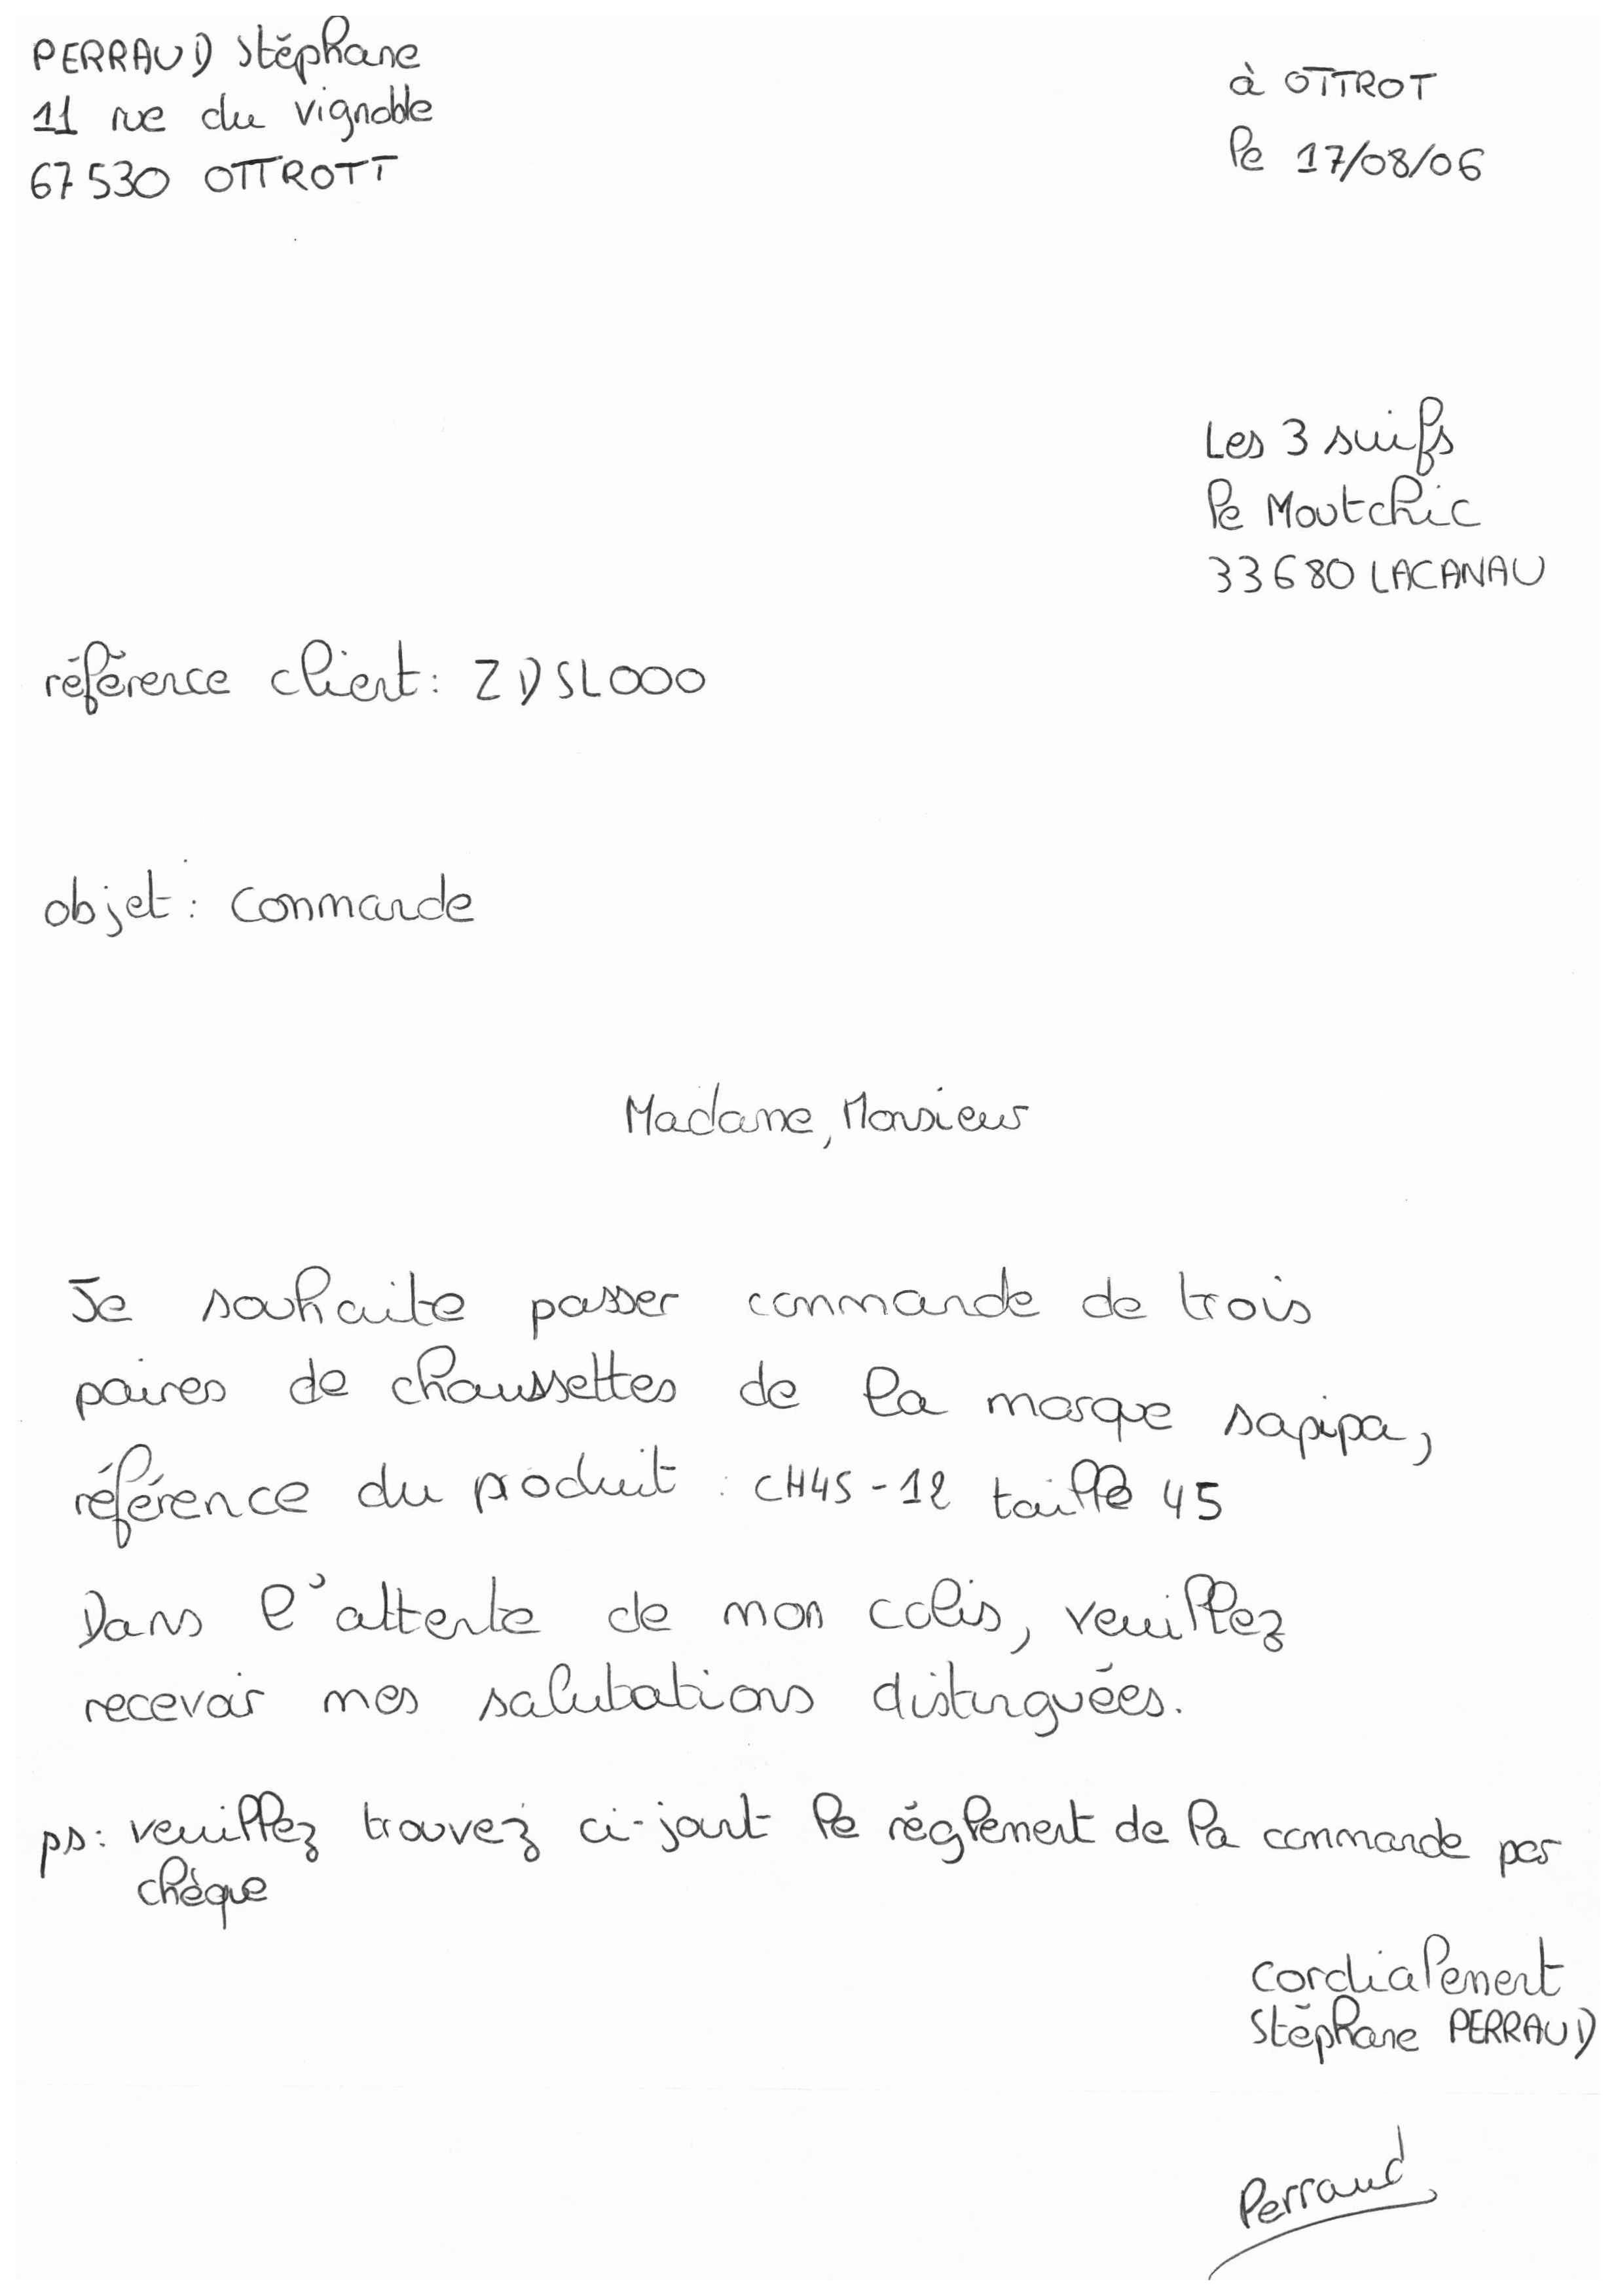 PERRAUD Stéphane
11 rue du vignoble
67530 OTTROTT
à OTTROT
le 17/08/06
Les 3 suifs
le Moutchic
33680 LACANAU
référence client: ZDSL000
objet: commande
Madame, Monsieur
Je souhaite passer commande de trois
paires de chaussettes de la marque sapipa,
référence du produit : CH45-12 taille 45
Dans l'attente de mon colis, veuillez
recevoir mes salutations distinguées.
ps: veuillez trouvez ci-joint le réglement de la commande par
chèque
cordialement
Stéphane PERRAUD
Perraud